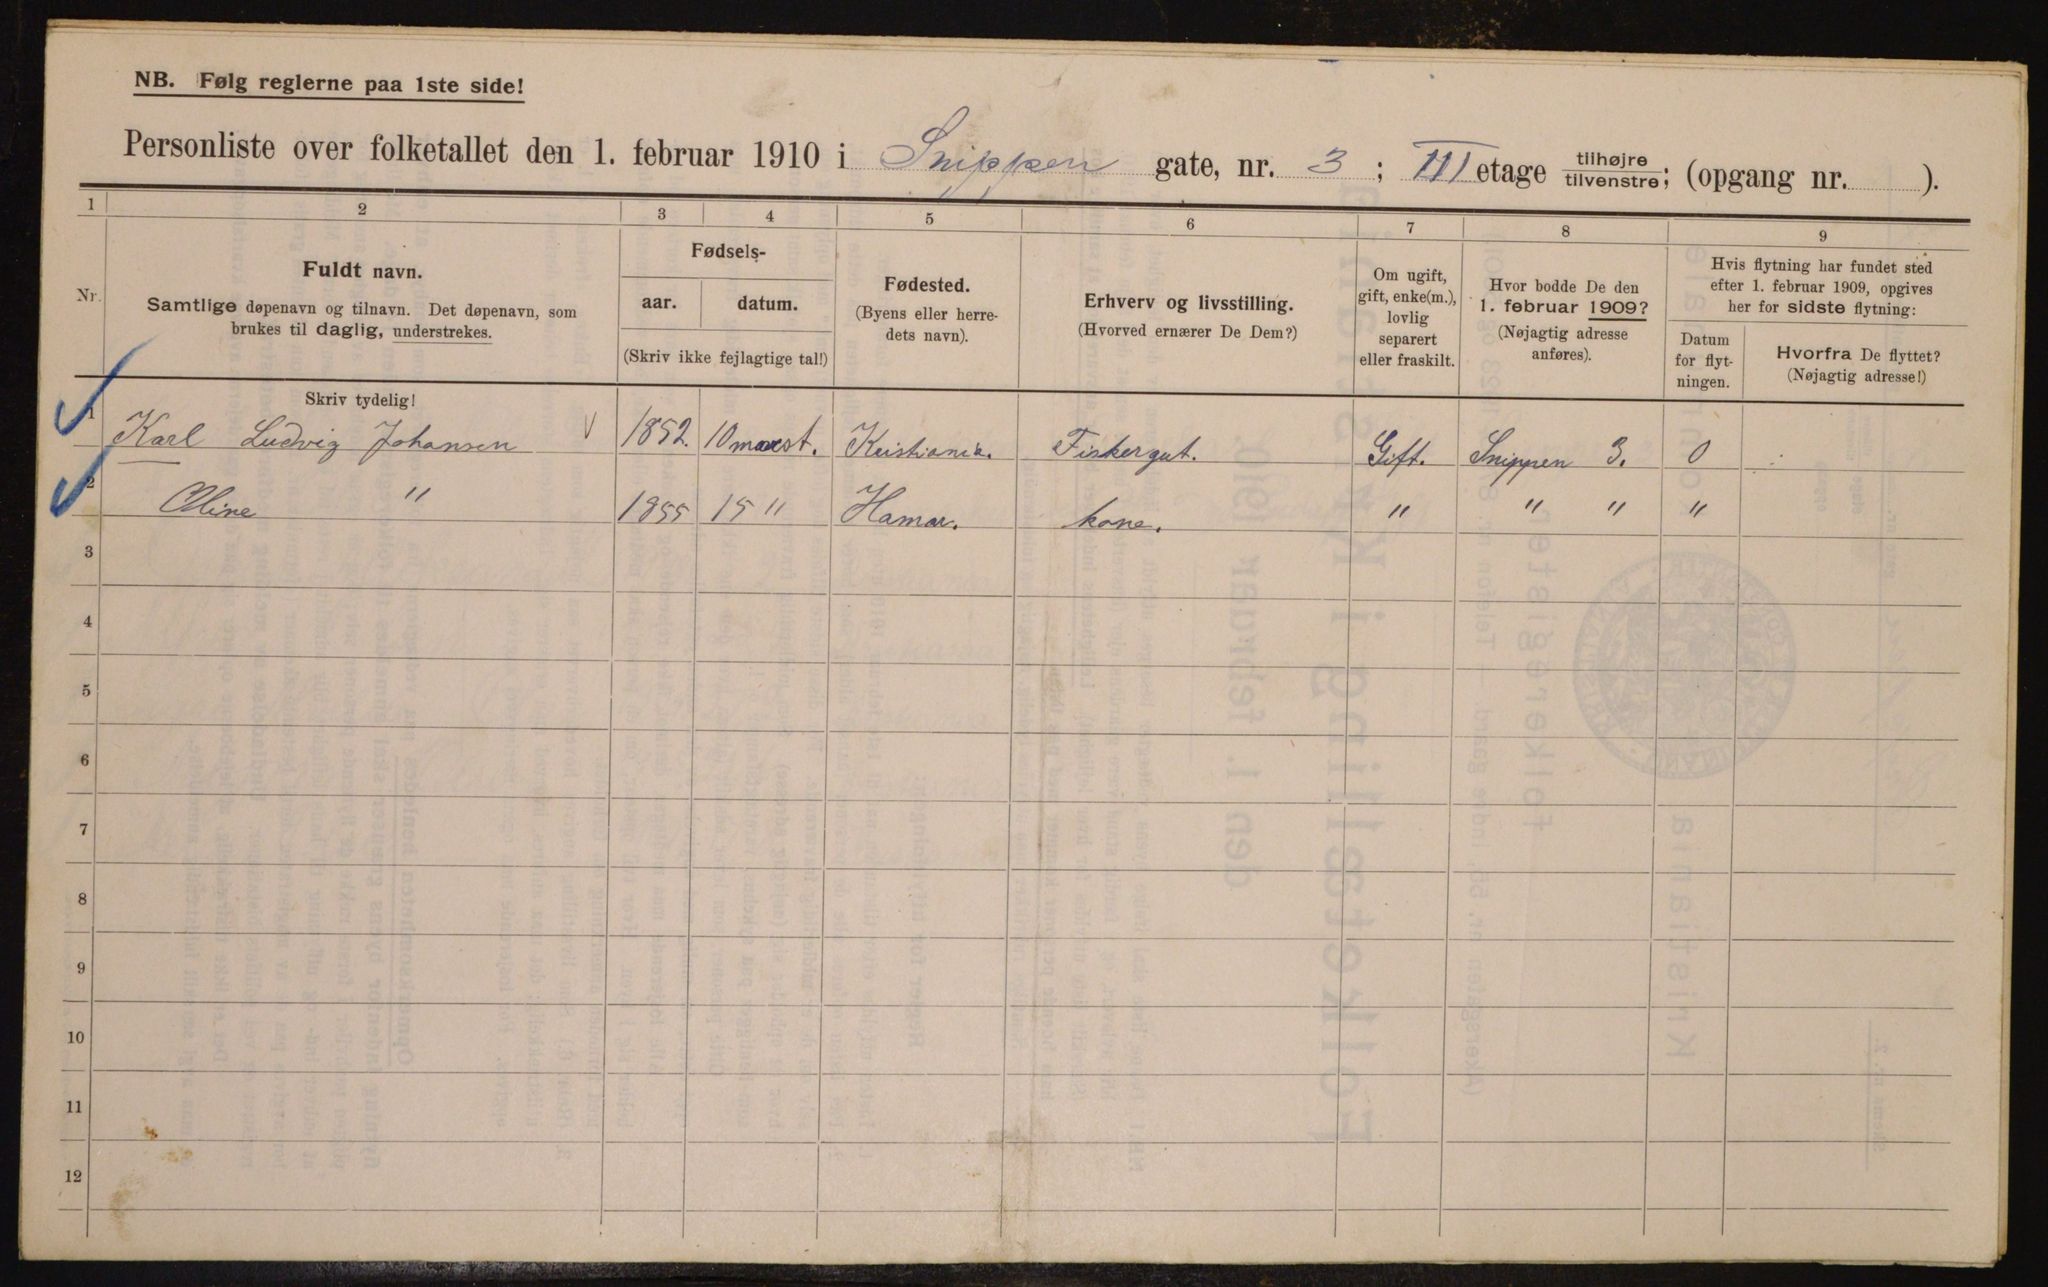 NB. Følg reglerne paa 1ste side!
Personliste over folketallet den 1. februar 1910 i Snippen gate, nr. 3; III etage tilhøjre/tilvenstre; (opgang nr. ).
1 2 3 4 5 6 7 8 9
Nr. Fuldt navn. Samtlige døpenavn og tilnavn. Det døpenavn, som brukes til daglig, understrekes.
Fødsels-
aar. datum.
(Skriv ikke fejlagtige tal!)
Fødested.
(Byens eller herre-
dets navn).
Erhverv og livsstilling.
(Hvorved ernærer De Dem?)
Om ugift,
gift, enke(m.),
lovlig
separert
eller fraskilt.
Hvor bodde De den
1. februar 1909?
(Nøjagtig adresse
anføres).
Hvis flytning har fundet sted
efter 1. februar 1909, opgives
her for sidste flytning:
Datum
for flyt-
ningen.
Hvorfra De flyttet?
(Nøjagtig adresse!)
Skriv tydelig!
1 Karl Ludvig Johansen 1852. 10 mast. Kristiania. Fiskergut. Gift. Snippen 3. 0
2 Oline " 1855 15 " Hamar. kone. " " " "
3
4
5
6
7
8
9
10
11
12